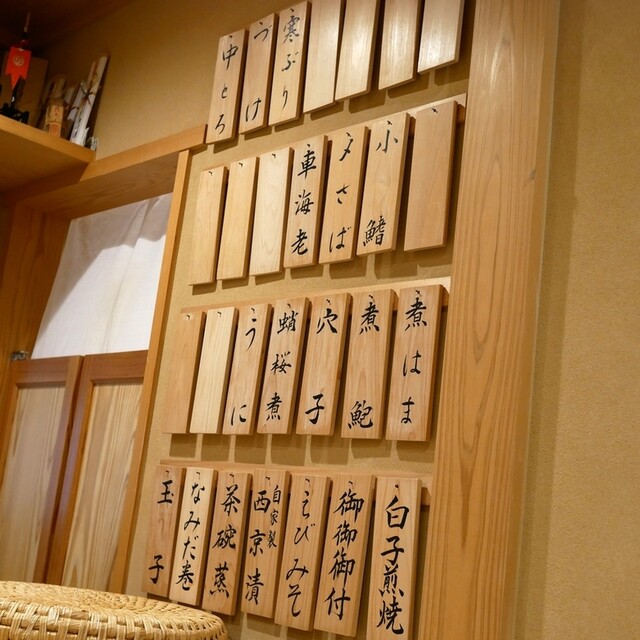 寒ぶり
づけ
中とろ
小鰭
〆さば
車海老
煮はま
煮鮑
穴子
蛸桜煮
うに
白子煎焼
御御御付
えびみそ
自家製
西京漬
茶碗蒸
なみだ巻
玉子